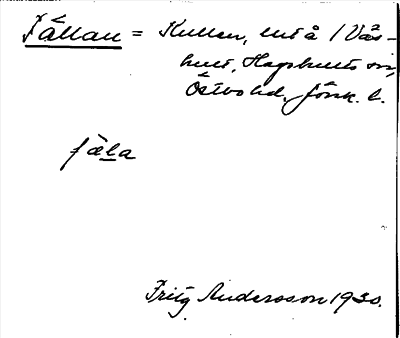 Fållan = Kullen, ent å 1 Vås-
hult, Hagshults sn,
Östbo hd, Jönk. l.
fåla
Fritz Andersson 1930.